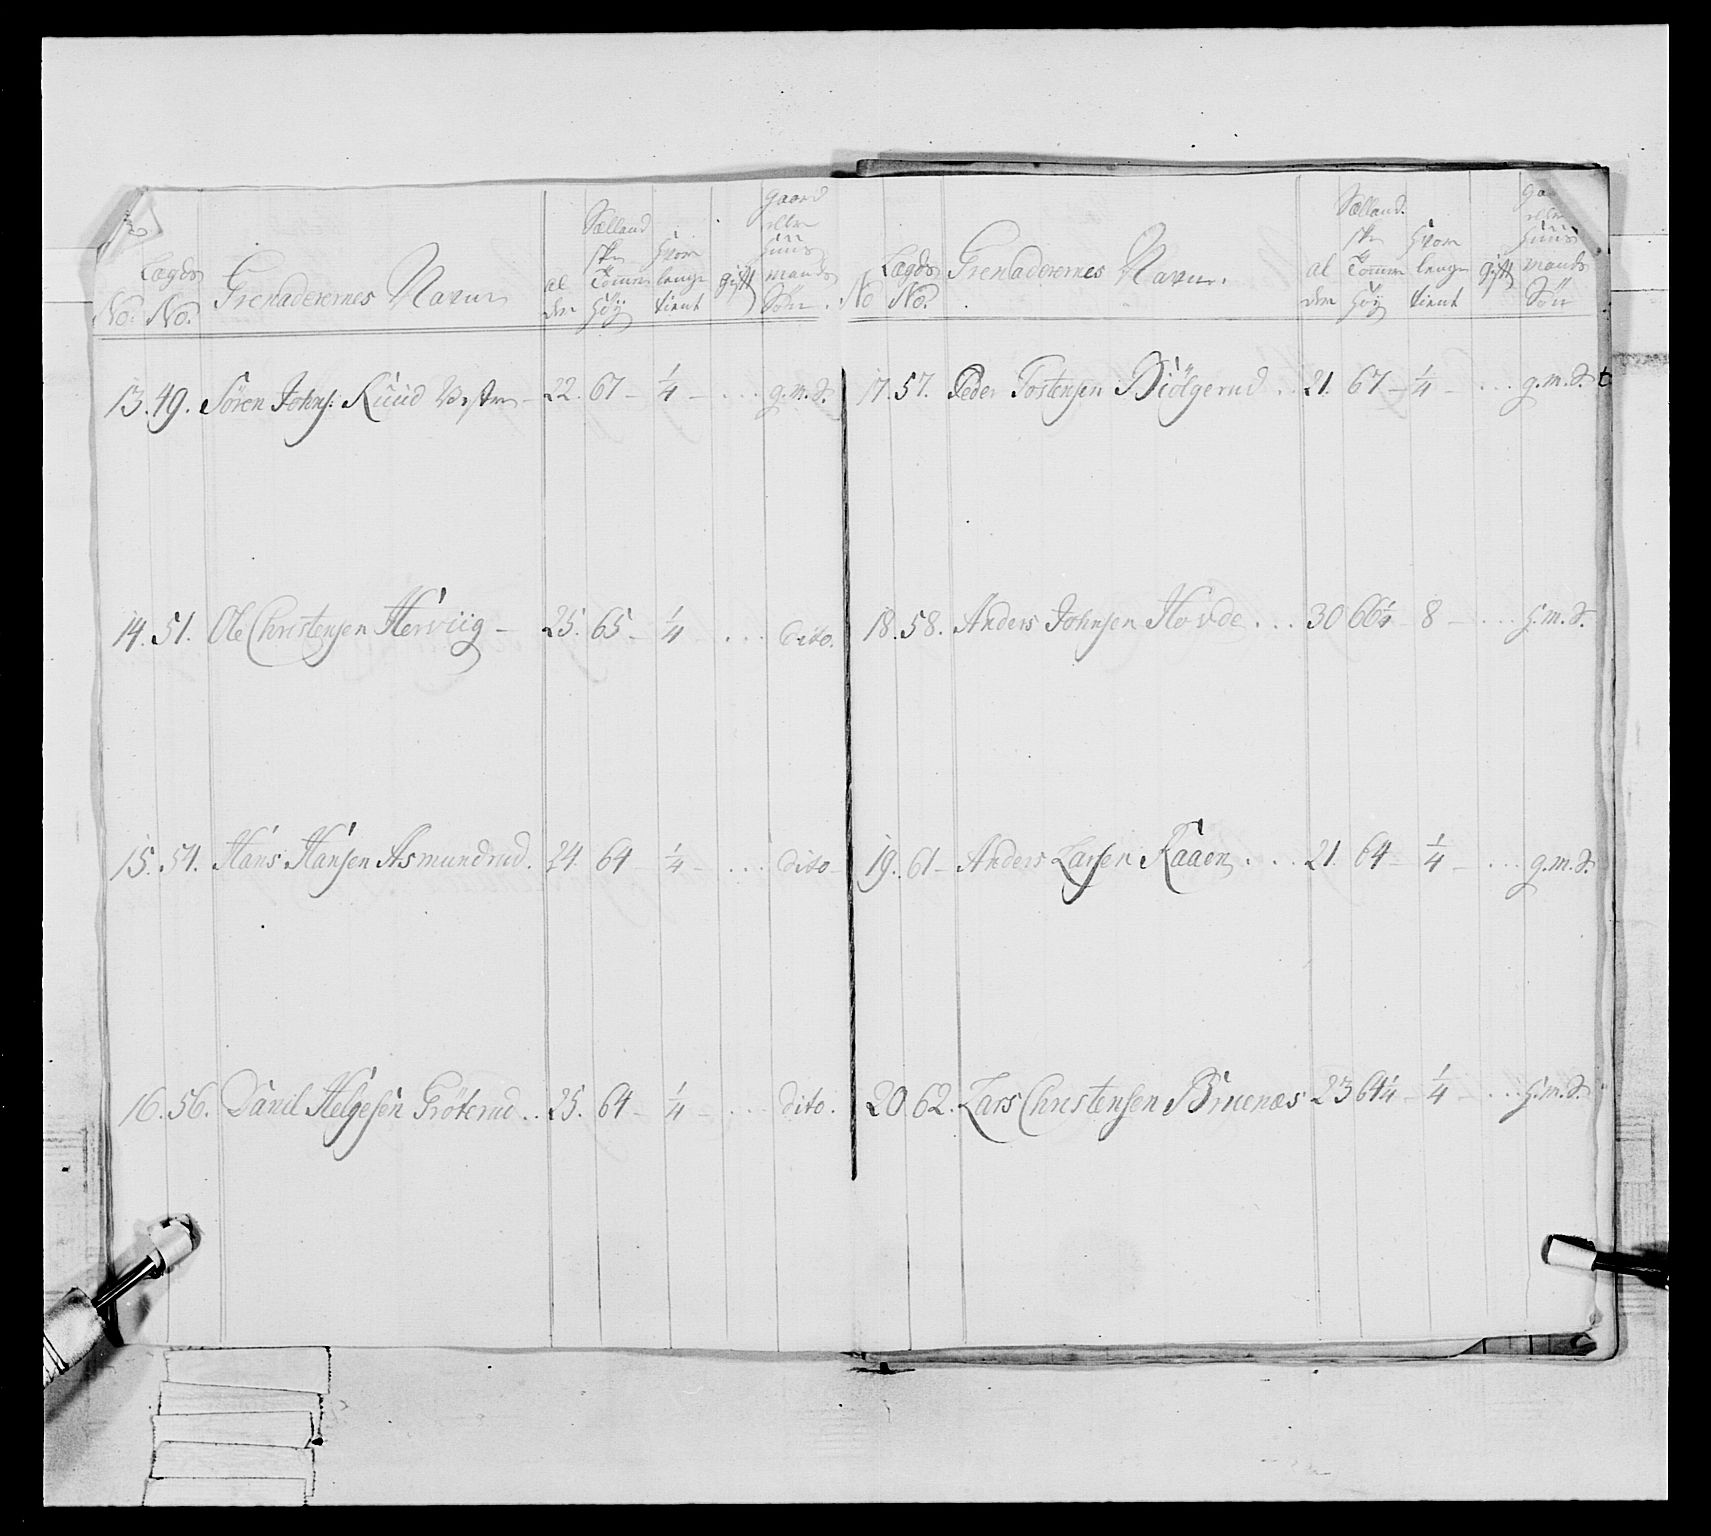 No. Lægds No. Grenaderernes Navne alder Sællandske Tommer Höy Hvor lenge tient gift gaard eller Huusmands Sön
13. 49. Sören Johns: Ruud Vestre 22. 67 1/4 g.m.S.
14. 51. Ole Christensen Herviig 25. 65 1/4 dito.
15. 54. Hans Hansen Asmundrud. 24. 64 1/4 dito
16. 56. Danil Helgesen Gröterud.. 25. 64 1/4 dito.
No Lægds No. Grenaderernes Navne. alder Sællandske Tommer Höy Hvor lenge tient gift gaard eller Huusmands Sön
17. 57. Peder Tostensen Biölgerud 21. 67 1/4 g.m.S.
18. 58. Anders Johnsen Hovde 30 66 8 H.m.S.
19. 61 Anders Larsen Raaen 21. 64 1/4 g.m.S.
20 62. Lars Christensen Bruenæs 23 64 1/4 1/4 H.m.S.